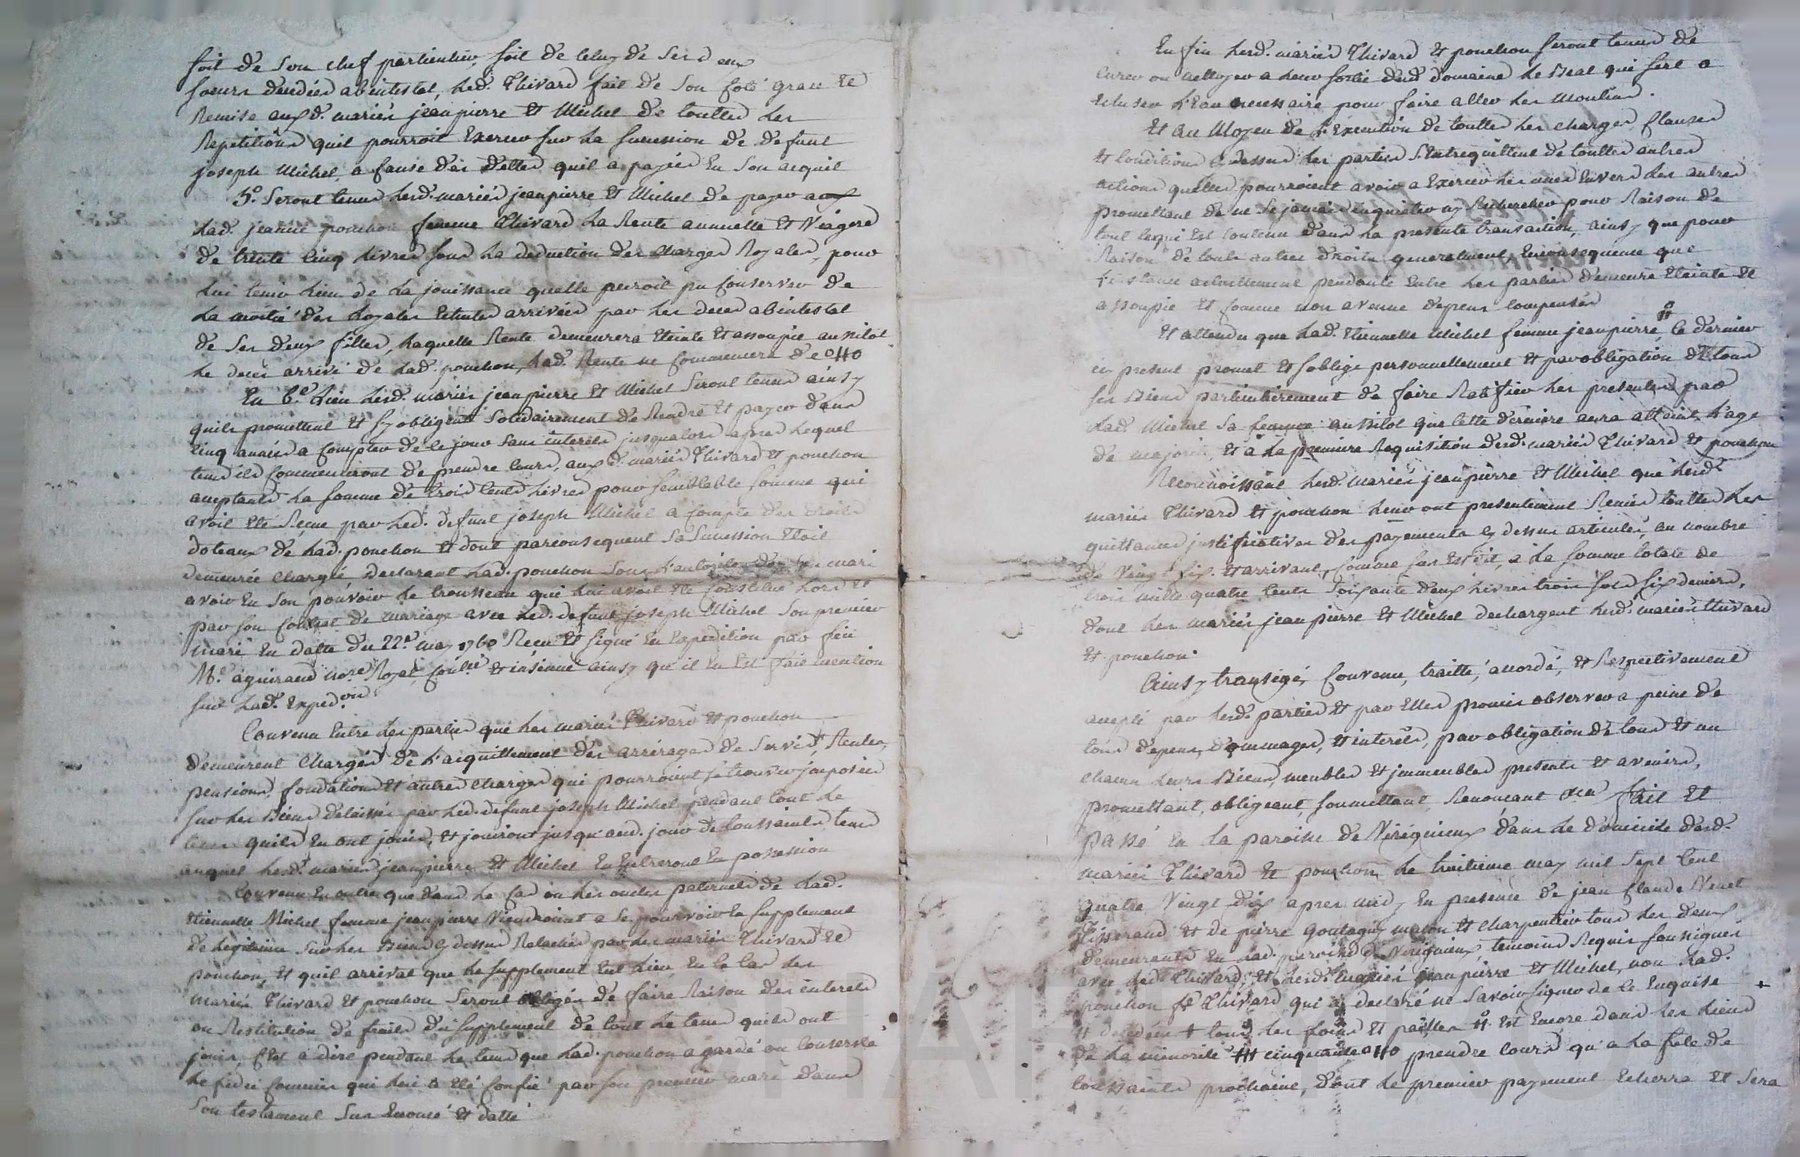 soit de son chef particulier soit de celuy de ses deux
soeurs decedées abintestat, led. Thivard fait de son coté grace et
Remise auxd. mariés jeanpierre et Michel de touttes les
Repetitions quil pourroit Exercer sur la succession de defunt
joseph Michel, a cause des dettes quil a payées En son acquit
5.° Seront tenus lesd. mariés jeanpierre et Michel de payer a
lad. jeanne pouchon femme Thivard la Rente annuelle et Viagere
de trente cinq livres sous la deduction des charges Royales, pour
lui tenir lieu de la jouissance quelle auroit pu conserver de
la moitié des hoyries Echutes arrivées par les deces abintestat
de ses deux filles, laquelle Rente demeurera Eteinte et assoupie aussitot
le deces arrivé de lad. pouchon, lad. Rente ne commencera de
En 6.e lieu lesd. mariés jeanpierre et Michel seront tenus ainsy
quils promettent et s'y obligent solidairement de Rendre et payer dans
cinq années a compter de ce jour sans interets jusqualors apres lequel
tems ils commenceront de prendre cours, auxd. mariés Thivard et pouchon
acceptants la somme de trois cents livres pour semblable somme qui
avoit eté Reçue par led. defunt joseph Michel a compte des droits
doteaux de lad. pouchon et dont parconsequent sa succession Etoit
demeurée chargée, declarant lad. pouchon sous l'autorité dud. son mari
avoir En son pouvoir le trousseau qui lui avoit eté constitué lors et
par son contrat de mariage avec led. defunt joseph Michel son premier
mari En datte du 22.e may 1760 Recu et signé En expedition par feu
M.e aguiraud no.re Royal, con.lé et insinué ainsy qu'il En est fait mention
sur lad. Exped.on
Convenu Entre les parties que les mariés Thivard et pouchon
demeurent chargés de l'acquittement des arrérages de servis, Rentes,
pensions, fondations et autres charges qui pourroient se trouver imposées
sur les Biens délaissés par led. defunt joseph Michel pendant tout le
tems quils En ont joui, et jouiront jusqu'aud. jour de toussaints tems
auquel lesd. mariés jeanpierre et Michel En Entreront En possession
Convenu En outre que dans le cas ou les oncles paternels de lad.
Etiennette Michel femme jeanpierre Viendroient a se pourvoir En supplement
de legitime sur les Biens cy dessus Relachés par les mariés Thivard et
pouchon, et quil arrivat que le supplement Eut lieu, En ce cas les
mariés Thivard et pouchon seront obligés de faire Raison des interets
ou Restitution de fruits du supplement de tout le tems quils ont
joui, c'est a dire pendant le tems que lad. pouchon a gardé ou conservé
le fidei commis qui lui a eté confié par son premier mari dans
son testament sus Enoncé et datté
En fin lesd. mariés Thivard et pouchon seront tenus de
curer ou nettoyer a leur sortie dud. domaine le Beal qui sert a
Ecluser l'Eau necessaire pour faire aller les Moulins.
Et au Moyen de l'Execution de touttes les charges, clauses
et conditions cy dessus les parties S'entrequittent de touttes autres
actions quelles pourroient avoir a Exercer les unes Envers les autres
promettant de ne se jamais inquieter ny Rechercher pour Raison de
tout ce qui Est contenu dans la presente transaction, ainsy que pour
Raison de touts autres droits generalement, Enconsequence que
l'instance actuellement pendante Entre les parties demeure Eteinte et
assoupie et comme non avenue depens compensés
Et attendu que lad. Etiennette Michel femme jeanpierre, ce dernier
cy present promet et s'oblige personnellement et par obligation de tous
ses Biens particulierement de faire Ratifier les presentes par
lad. Michel sa femme aussitot que cette derniere aura atteint l'age
de majorité, et a la premiere Requisition desd. mariés Thivard et pouchon
Reconnoissant lesd. mariés jeanpierre et Michel que lesd.
mariés Thivard et pouchon leur ont presentement Remis touttes les
quittances justificatives des payements cy dessus articulés, au nombre
de Vingt six. Et arrivant, comme sus Est dit, a la somme totale de
trois mille quatre cents soixante deux livres trois sols six deniers,
dont les mariés jeanpierre et Michel dechargent lesd. mariés Thivard
Et pouchon.
Ainsy transigé, convenu, traitté, accordé, et Respectivement
accepté par lesd. parties et par Elles promis observer a peine de
tous depens, dommages, et interets, par obligation de tous et un
chacun leurs Biens, meubles et immeubles presents et avenirs,
promettant, obligeant, soumettant, Renoncant &ca fait et
passé En la paroisse de Virignieux dans le domicile desd.
mariés Thivard et pouchon le troisieme may mil sept cent
quatre vingt dix apres midy En presence de jean claude
Tisserand et de pierre goutagny maçon et charpentier tous les deux
demeurants En lad. paroisse de Virignieux, temoins Requis soussignés
avec led. Thivard, et lesd. mariés jeanpierre et Michel, non lad.
pouchon f.e Thivard qui a declaré ne savoir signer de ce Enquise
tous les foins et pailles Est Encore dans les liens
de la minorité cinquante prendre cours qu'a la fete de
toussaints prochaine, dont le premier payement Echerra et sera